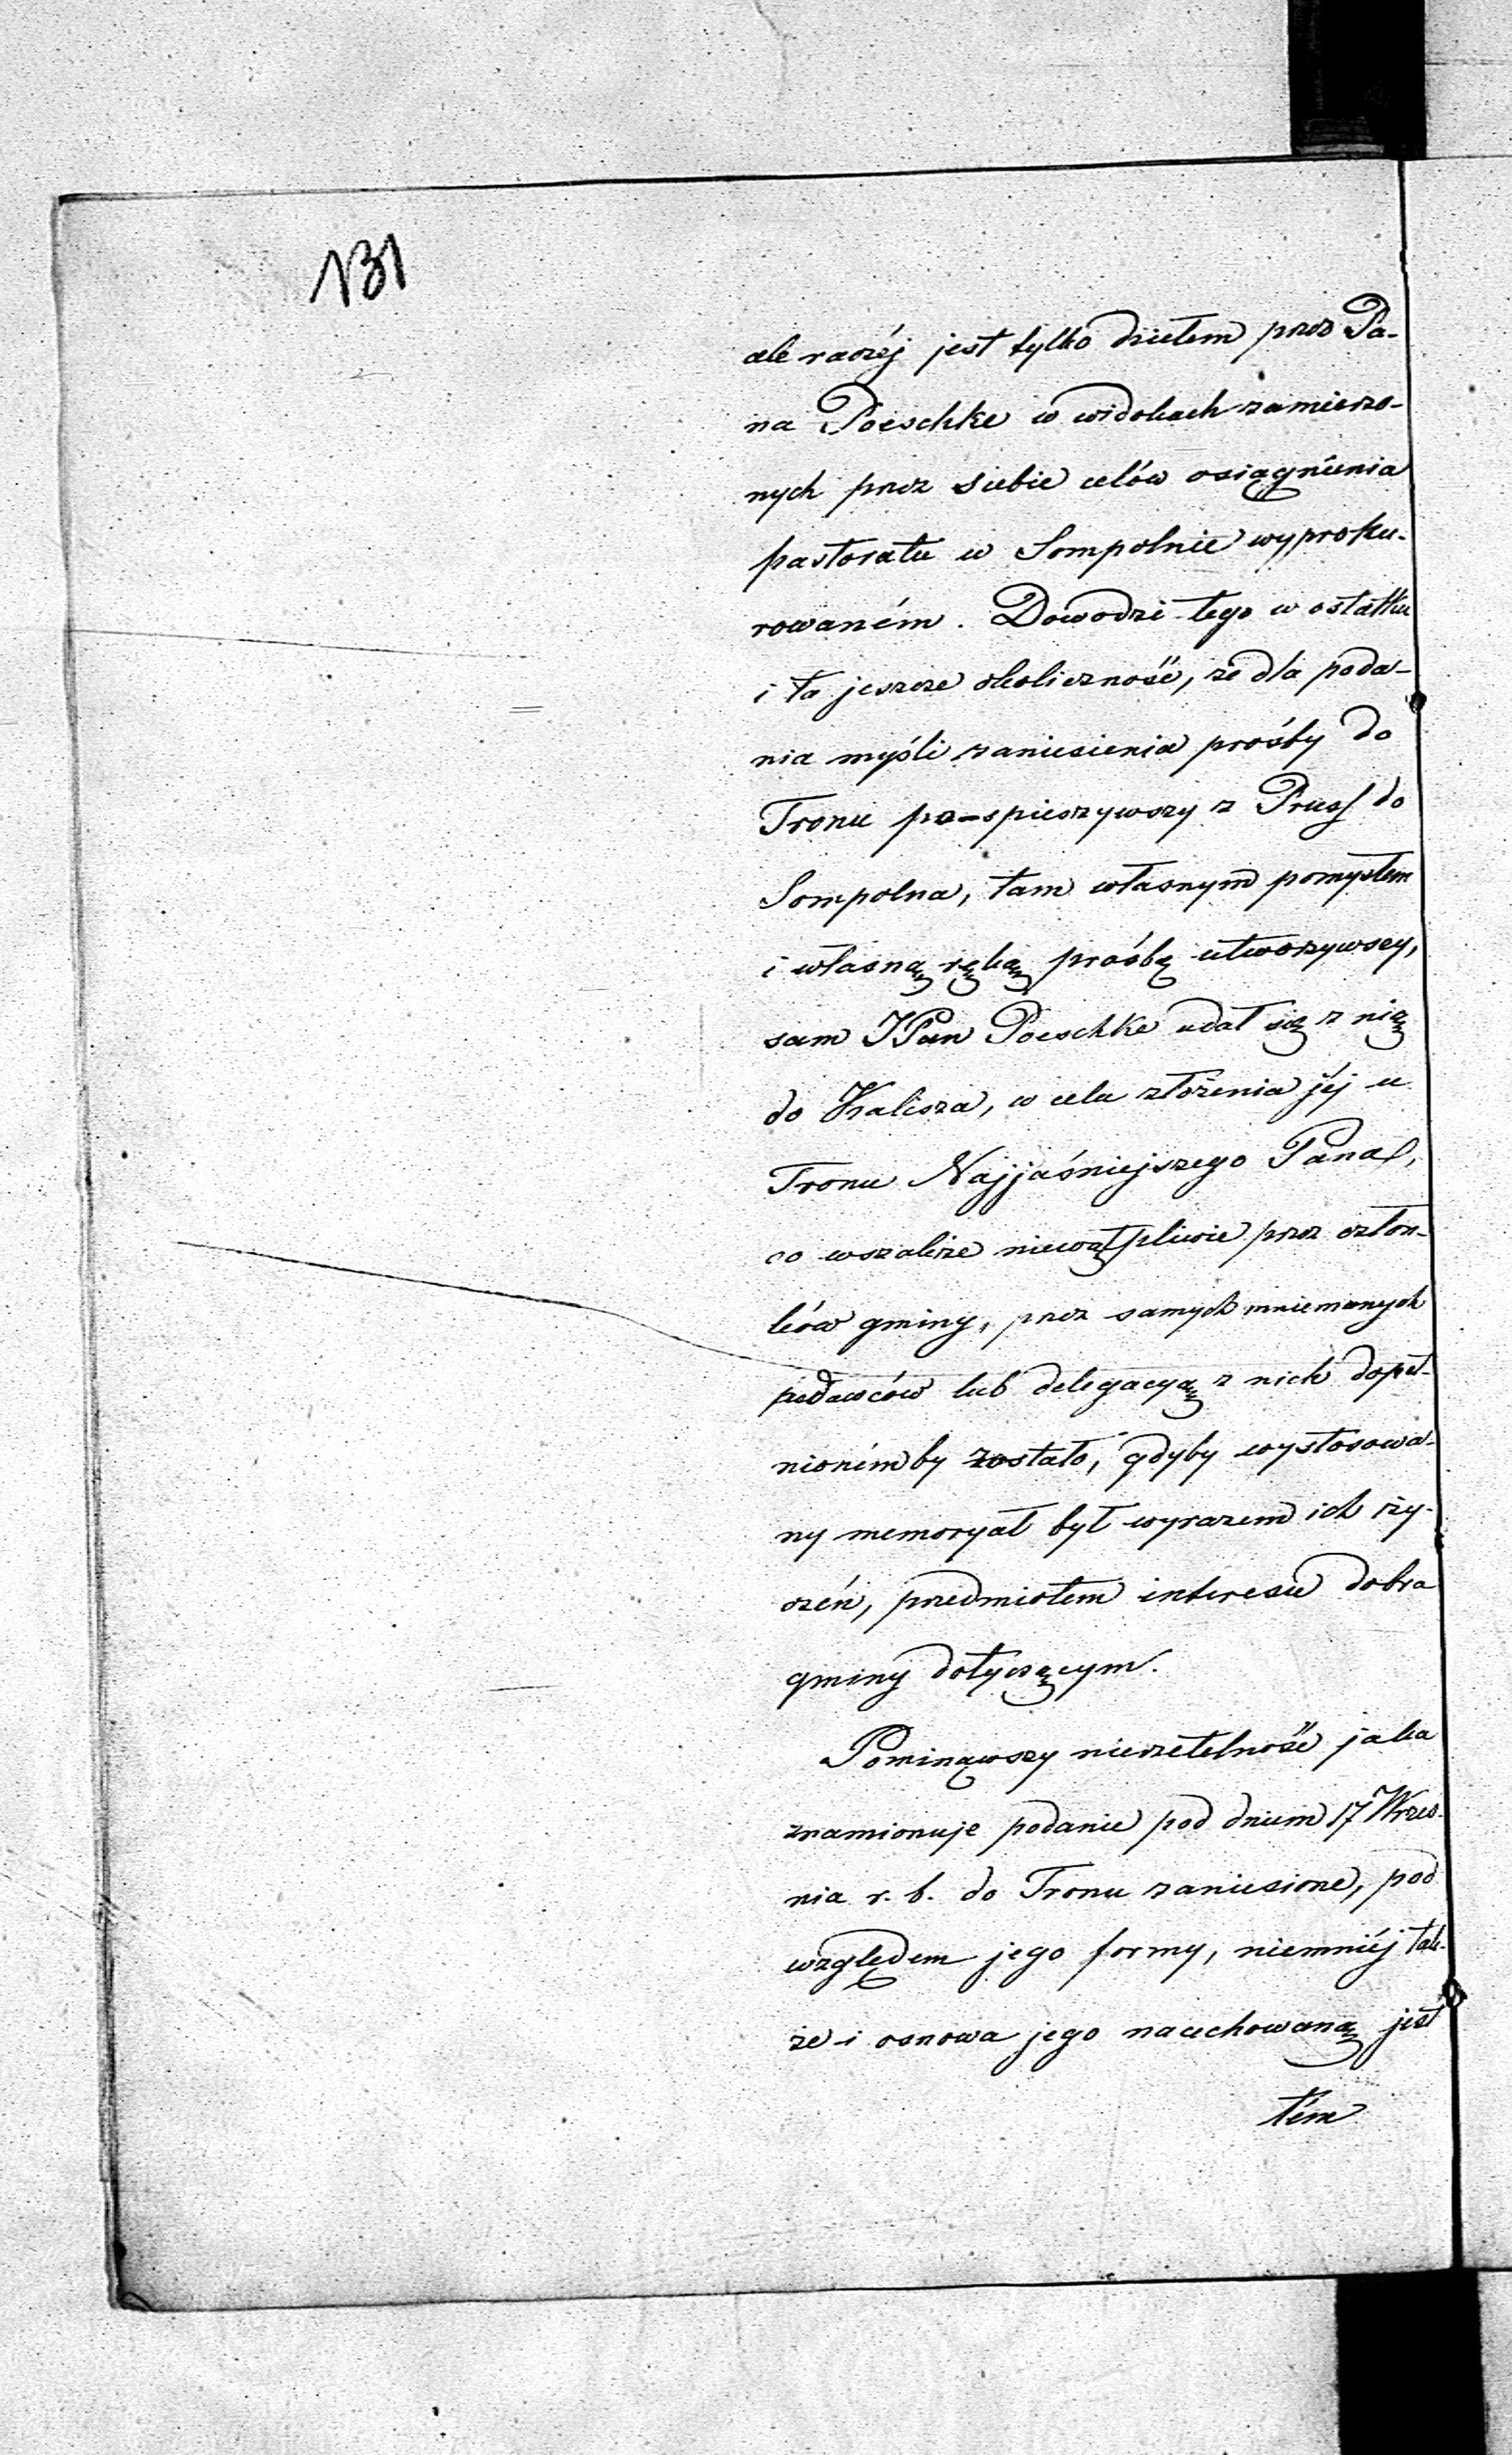 131
ale raczéj jest tylko dziełem przez Pa-
na Poeschke w widokach zamierzo-
nych przez siebie celów osiągnienia
pastoratu w Sompolnie wyproku-
rowaném. Dowodzi tego w ostatku
i ta jeszcze okoliczność, że dla poda-
nia myśli zaniesienia prośby do
Tronu pospieszywszy z Pruss do
Sompolna, tam własnym pomysłem
i własną ręką prośbę utworzywszy,
sam JPan Poeschke udał się z nią
do Kalisza, w celu złożenia jéj u
Tronu Najjaśniejszego Pana,
co wszakże niewątpliwie przez człon-
ków gminy, przez samych mniemanych
podawców lub delegacyą z nich dopeł-
nioném by zostało, gdyby wystosowa-
ny memoryał był wyrazem ich ży-
czeń, przedmiotem interesu dobra
gminy dotyczącym.
Pominąwszy nierzetelność jaka
znamionuje podanie pod dniem 17 Wrześ-
nia r. b. do Tronu zaniesione, pod
względem jego formy, niemniéj tak-
że i osnowa jego nacechowaną jest
tém